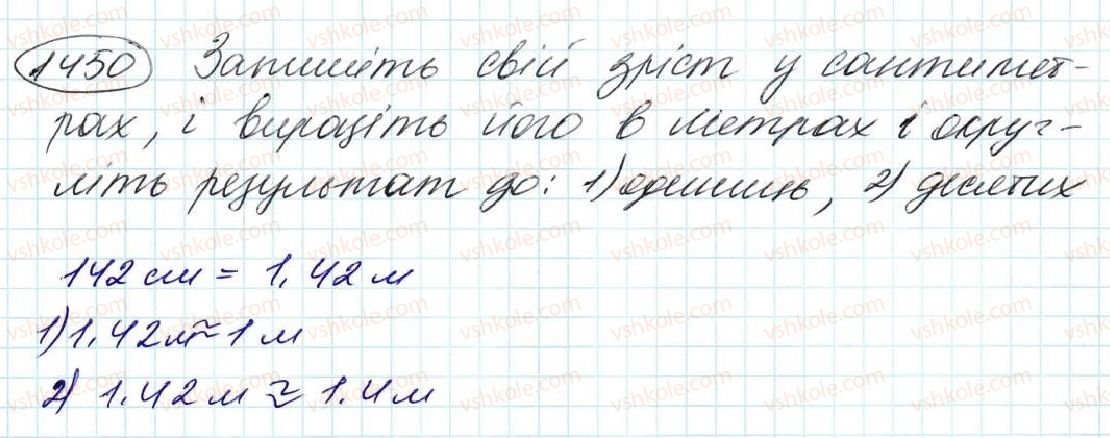 1450 Запишіть свій зріст у сантимет-
рах, і виразіть його в метрах і округ-
літь результат до: 1) одиниць, 2) десятих
142 см = 1,42 м
1) 1,42 м ≈ 1 м
2) 1,42 м ≈ 1,4 м